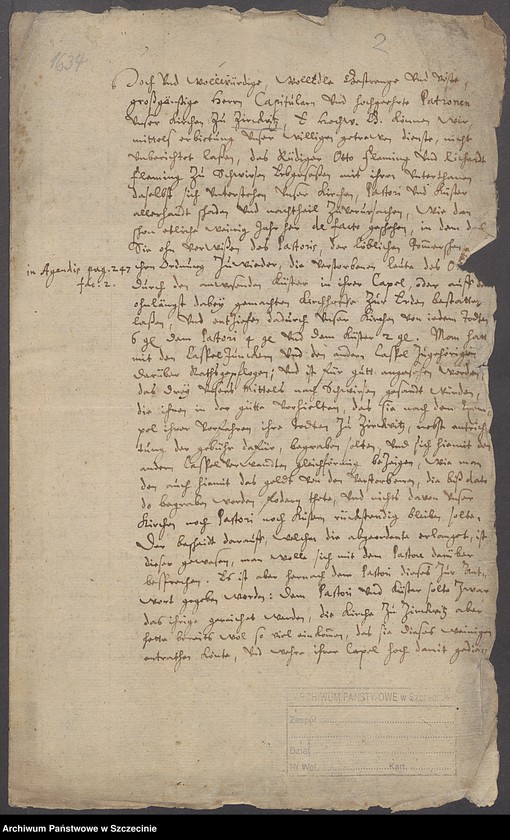 1634
2
Hoch Und Wollwürdige, WollEdle Gestrenge Und Veste,
großgünstige Herrn Capitularn Und hochgeehrte Patronen
Unser Kirchen Zu Zirckwitz, E. Hochw. können Wir
mittels erbietung Unser Willigen getrewen dienste, nicht
Unberichtet laßen, das Rüdiger Otto Fleming Und Richardt
Fleming Zu Schwirsen Erbgesessen mit ihren Unterthanen
daselbst sich Unterstehen Unser Kirchen, Pastori Und Küster
allerhandt schaden Und nachtheil Zuverursachen, Wie dan
schon etliche Wenig Jahr her de facto geschehen, in dem das
Sie ohn Vorwißen des Pastoris, der löblichen Pommerschen
in Agendis pag. 247
fac. 2.
ihen Ordnung Zuwieder, die Verstorbenen leute des
durch den Küster in ihrer Capel, oder auff dem
ohnlängst dabey gemachten Kirchhoffe Zur Erden bestatten
laßen, Und entziehen dadurch Unser Kirchen von iedem Todten
6 gl. dem Pastori 4 gl Und dem Küster 2 gl. Man hatt
mit den CasspelJunckern Und den andern Caspel Zugehörigen
darüber Rathgepflogen; Und ist für gutt angesehen worden,
das Drey Unsers mittels nach Schwirsen gesandt würden,
die ihnen in der gütte Vorhielten, das sie nach dem Exem-
pel ihrer Vorfahren, ihre Todten Zu Zirckwitz, nebst entrich-
tung der gebühr dafür, begraben solten, Und sich hiemit den
andern CasspelVerwandten gleichförmig beZeigen, Wie man
den auch hiemit das geldt Von den Verstorbenen, die biß dato
do begraben worden, fodern thete, Und nichts davon Unser
Kirchen noch Pastori noch Küstern rückstendig bleiben solte.
Der bescheidt darauff, welchen die abgeordente erlanget, ist
dieser gewesen, man wolle sich mit dem Pastore darüber
besprechen. Es ist aber hernach dem Pastori dieses Zur Ant-
wort gegeben worden: Dem Pastori Und Küster solte Zwar
das ihrige gereichet werden, die Kirche Zu Zirckwitz aber
hette bereits wol so viel einkomen, das sie dieses wenigen
entrathen könte, Und were ihrer Capel hoch damit gedienet
ARCHIWUM PAŃSTWOWE w Szczecinie
Zespół
Dział
Nr Wol. Kart.
Archiwum Państwowe w Szczecinie